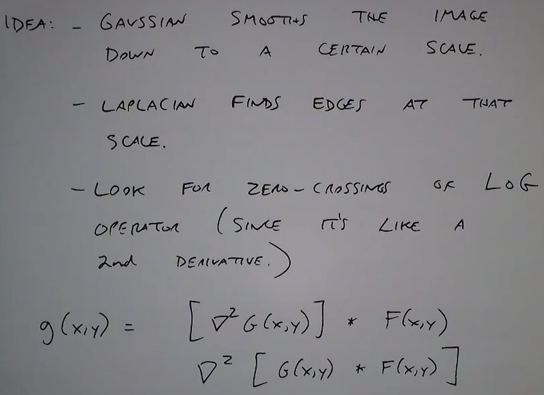 IDEA: - GAUSSIAN SMOOTHS THE IMAGE
DOWN TO A CERTAIN SCALE.
- LAPLACIAN FINDS EDGES AT THAT
SCALE.
- LOOK FOR ZERO-CROSSINGS OF LOG
OPERATOR (SINCE IT'S LIKE A
2nd DERIVATIVE.)
g(x,y) = [∇² G(x,y)] * F(x,y)
∇² [G(x,y) * F(x,y)]